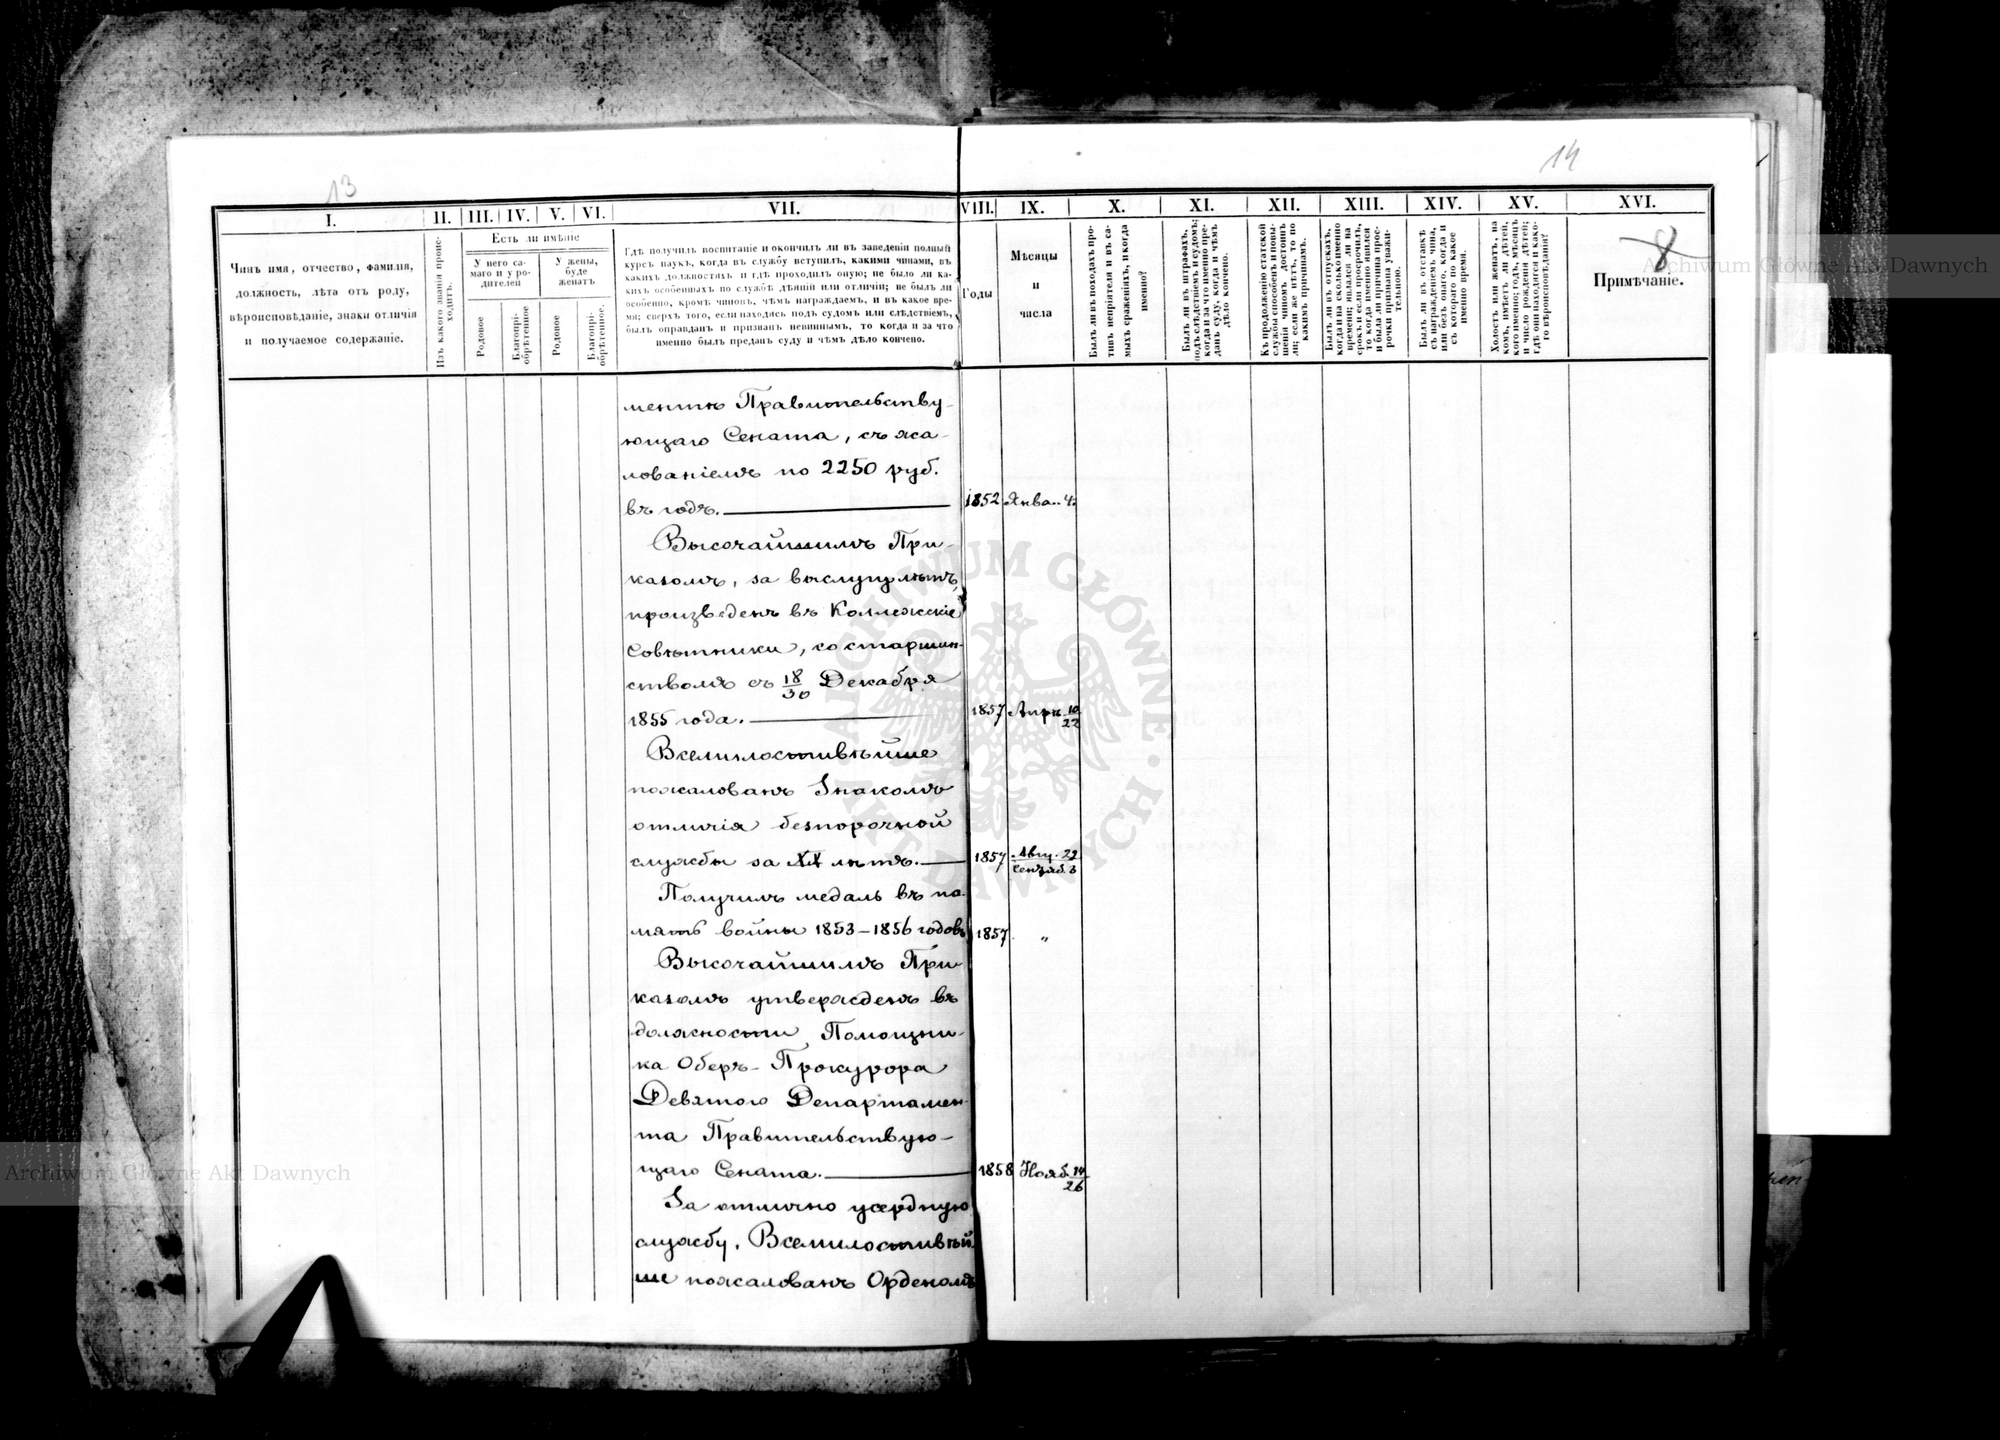 13
14
I.
II.
III.
IV.
V.
VI.
VII.
VIII.
IX.
X.
XI.
XII.
XIII.
XIV.
XV.
XVI.
Чинъ имя, отчество, фамилія,
должность, лѣта отъ роду,
вѣроисповѣданіе, знаки отличія
и получаемое содержаніе.
Изъ какого званія проис-
ходитъ.
Есть ли имѣніе
У него са-
маго и у ро-
дителей
У жены,
буде
женатъ
Родовое
Благопрі-
обрѣтенное
Родовое
Благопрі-
обрѣтенное.
Гдѣ получилъ воспитаніе и окончилъ ли въ заведеніи полный
курсъ наукъ, когда въ службу вступилъ, какими чинами, въ
какихъ должностяхъ и гдѣ проходилъ оную; не было ли ка-
кихъ особенныхъ по службѣ дѣяній или отличій; не былъ ли
особенно, кромѣ чиновъ, чѣмъ награждаемъ, и въ какое вре-
мя; сверхъ того, если находясь подъ судомъ или слѣдствіемъ,
былъ оправданъ и признанъ невиннымъ, то когда и за что
именно былъ преданъ суду и чѣмъ дѣло кончено.
Годы
Мѣсяцы
и
числа
Былъ ли въ походахъ про-
тивъ непріятеля и въ са-
мыхъ сраженіяхъ, и когда
именно?
Былъ ли въ штрафахъ,
подъ слѣдствіемъ и судомъ;
когда и за что именно пре-
данъ суду, когда и чѣмъ
дѣло кончено.
Къ продолженію статской
службы способенъ и повы-
шенія чиномъ достоинъ
ли; если же нѣтъ, то по
какимъ причинамъ.
Былъ ли въ отпускахъ,
когда и на сколько именно
времени; явился ли на
срокъ и если просрочилъ,
то когда именно явился
и была ли причина прос-
рочки признана уважи-
тельною.
Былъ ли въ отставкѣ
съ награжденіемъ чина,
или безъ онаго, когда и
съ котораго по какое
именно время.
Холостъ или женатъ, на
комъ, имѣетъ ли дѣтей,
кого именно; годъ, мѣсяцъ
и число рожденія дѣтей;
гдѣ они находятся и како-
го вѣроисповѣданія?
8
Примѣчаніе.
ментѣ Правительству-
ющаго Сената, съ жа-
лованіемъ по 2250 руб.
въ годъ. 1852 Янва. 4.
Высочайшимъ При-
казомъ, за выслугу лѣтъ,
произведенъ въ Коллежскіе
Совѣтники, со старшин-
ствомъ съ 18/30 Декабря
1855 года. 1857 Апрѣ. 10/22
Всемилостивѣйше
пожалованъ Знакомъ
отличія безпорочной
службы за XX лѣтъ. 1857 Авгу. 22/Сентяб. 3
Получилъ медаль въ па-
мять войны 1853–1856 годовъ 1857 „
Высочайшимъ При-
казомъ утвержденъ въ
должности Помощни-
ка Оберъ-Прокурора
Девятого Департамен-
та Правительствую-
щаго Сената. 1858 Нояб. 14/26
За отлично усердную
службу, Всемилостивѣй-
ше пожалованъ Орденомъ
ARCHIWUM GŁÓWNE AKT DAWNYCH
Archiwum Główne Akt Dawnych
Archiwum Główne Akt Dawnych